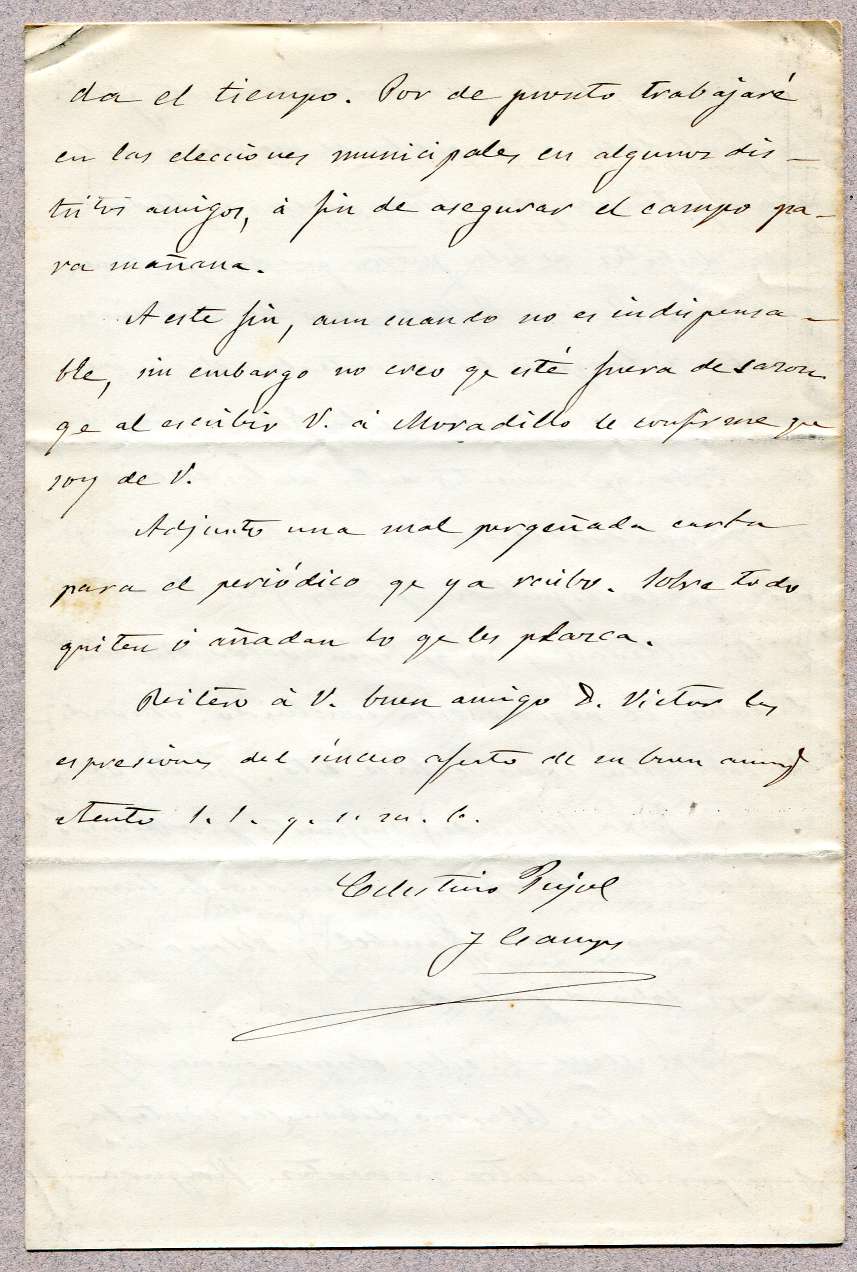 da el tiempo. Por de pronto trabajaré
en las elecciones municipales en algunos dis-
tritos amigos, á fin de asegurar el campo pa-
ra mañana.
A este fin, aun cuando no es indispensa-
ble, sin embargo no creo qe esté fuera de sazon
qe al escribir V. á Moradillo le confirme que
soy de V.
Adjunto una mal pergeñada carta
para el periódico qe ya recibo. Sobre todo
quiten ó añadan lo qe les plazca.
Reitero á V. buen amigo D. Victor las
espresiones del sincero afecto de su buen amigo
atento s. s. q. s. m. b.
Celestino Pujol
y Camps